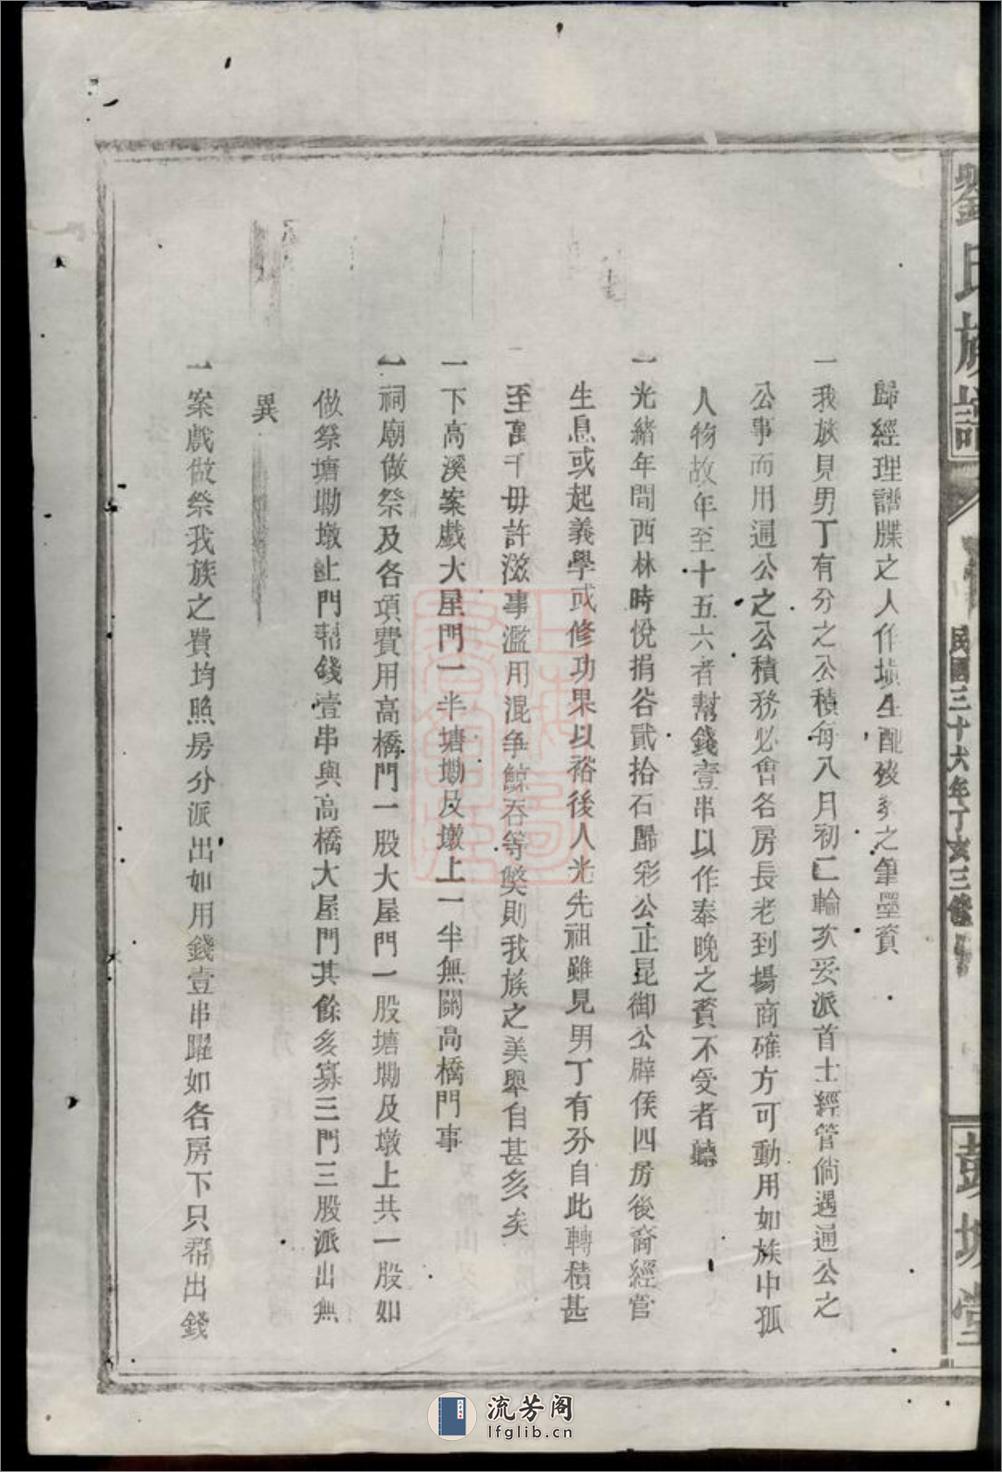 劉氏族譜
民國三十六年丁亥三修
彭城堂
歸經理譜牒之人作填生配歿葬之筆墨資
一我族見男丁有分之公積每八月初二輪次妥派首士經管倘遇通公之
公事而用通公之公積務必會名房長老到場商確方可動用如族中孤
人物故年至十五六者幫錢壹串以作奉晚之資不受者聽
一光緒年間西林時悅捐谷貳拾石歸彩公正昆御公辟侯四房後裔經管
生息或起義學或修功果以裕後人光先祖雖見男丁有分自此轉積甚
至萬千毋許滋事濫用混争鯨吞等弊則我族之美舉自甚多矣
一下高溪案戲大屋門一半塘塸及墩上一半無關高橋門事
一祠廟做祭及各項費用高橋門一股大屋門一股塘塸及墩上共一股如
做祭塘塸墩上門幫錢壹串與高橋大屋門其餘多寡三門三股派出無
異
一案戲做祭我族之費均照房分派出如用錢壹串躍如各房下只幫出錢
流芳阁
lfglib.cn